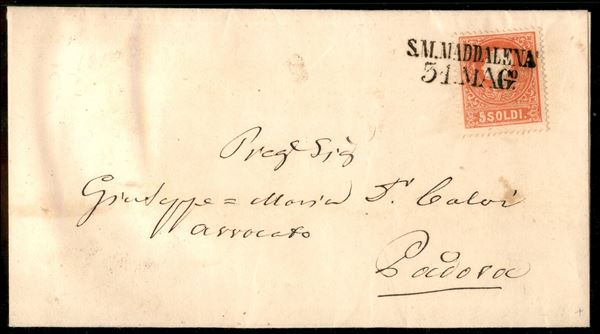 S.M.MADDALENA
31. MAGº
5 SOLDI
Preg. Sig
Giuseppe = Maria Dr Calvi
Avvocato
Padova